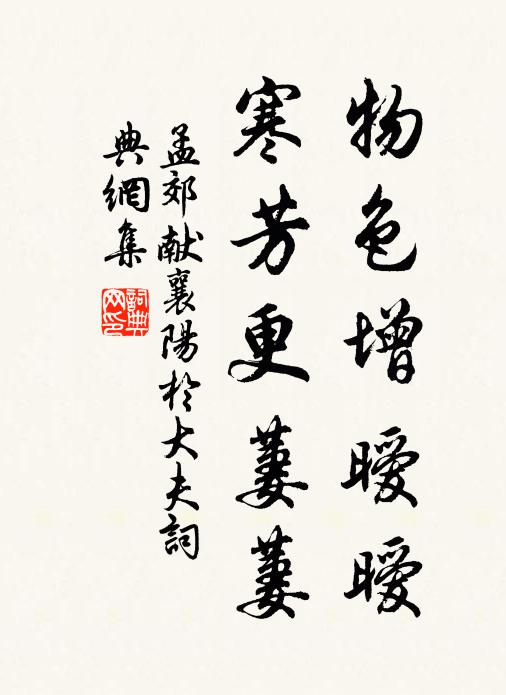 物色增曖曖
寒芳更萋萋
孟郊献襄陽於大夫詞
典網集
詞典
网印